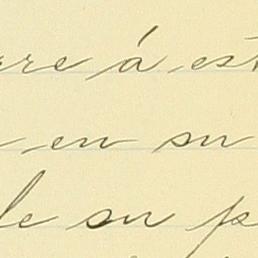 rre á est
en su
le su p